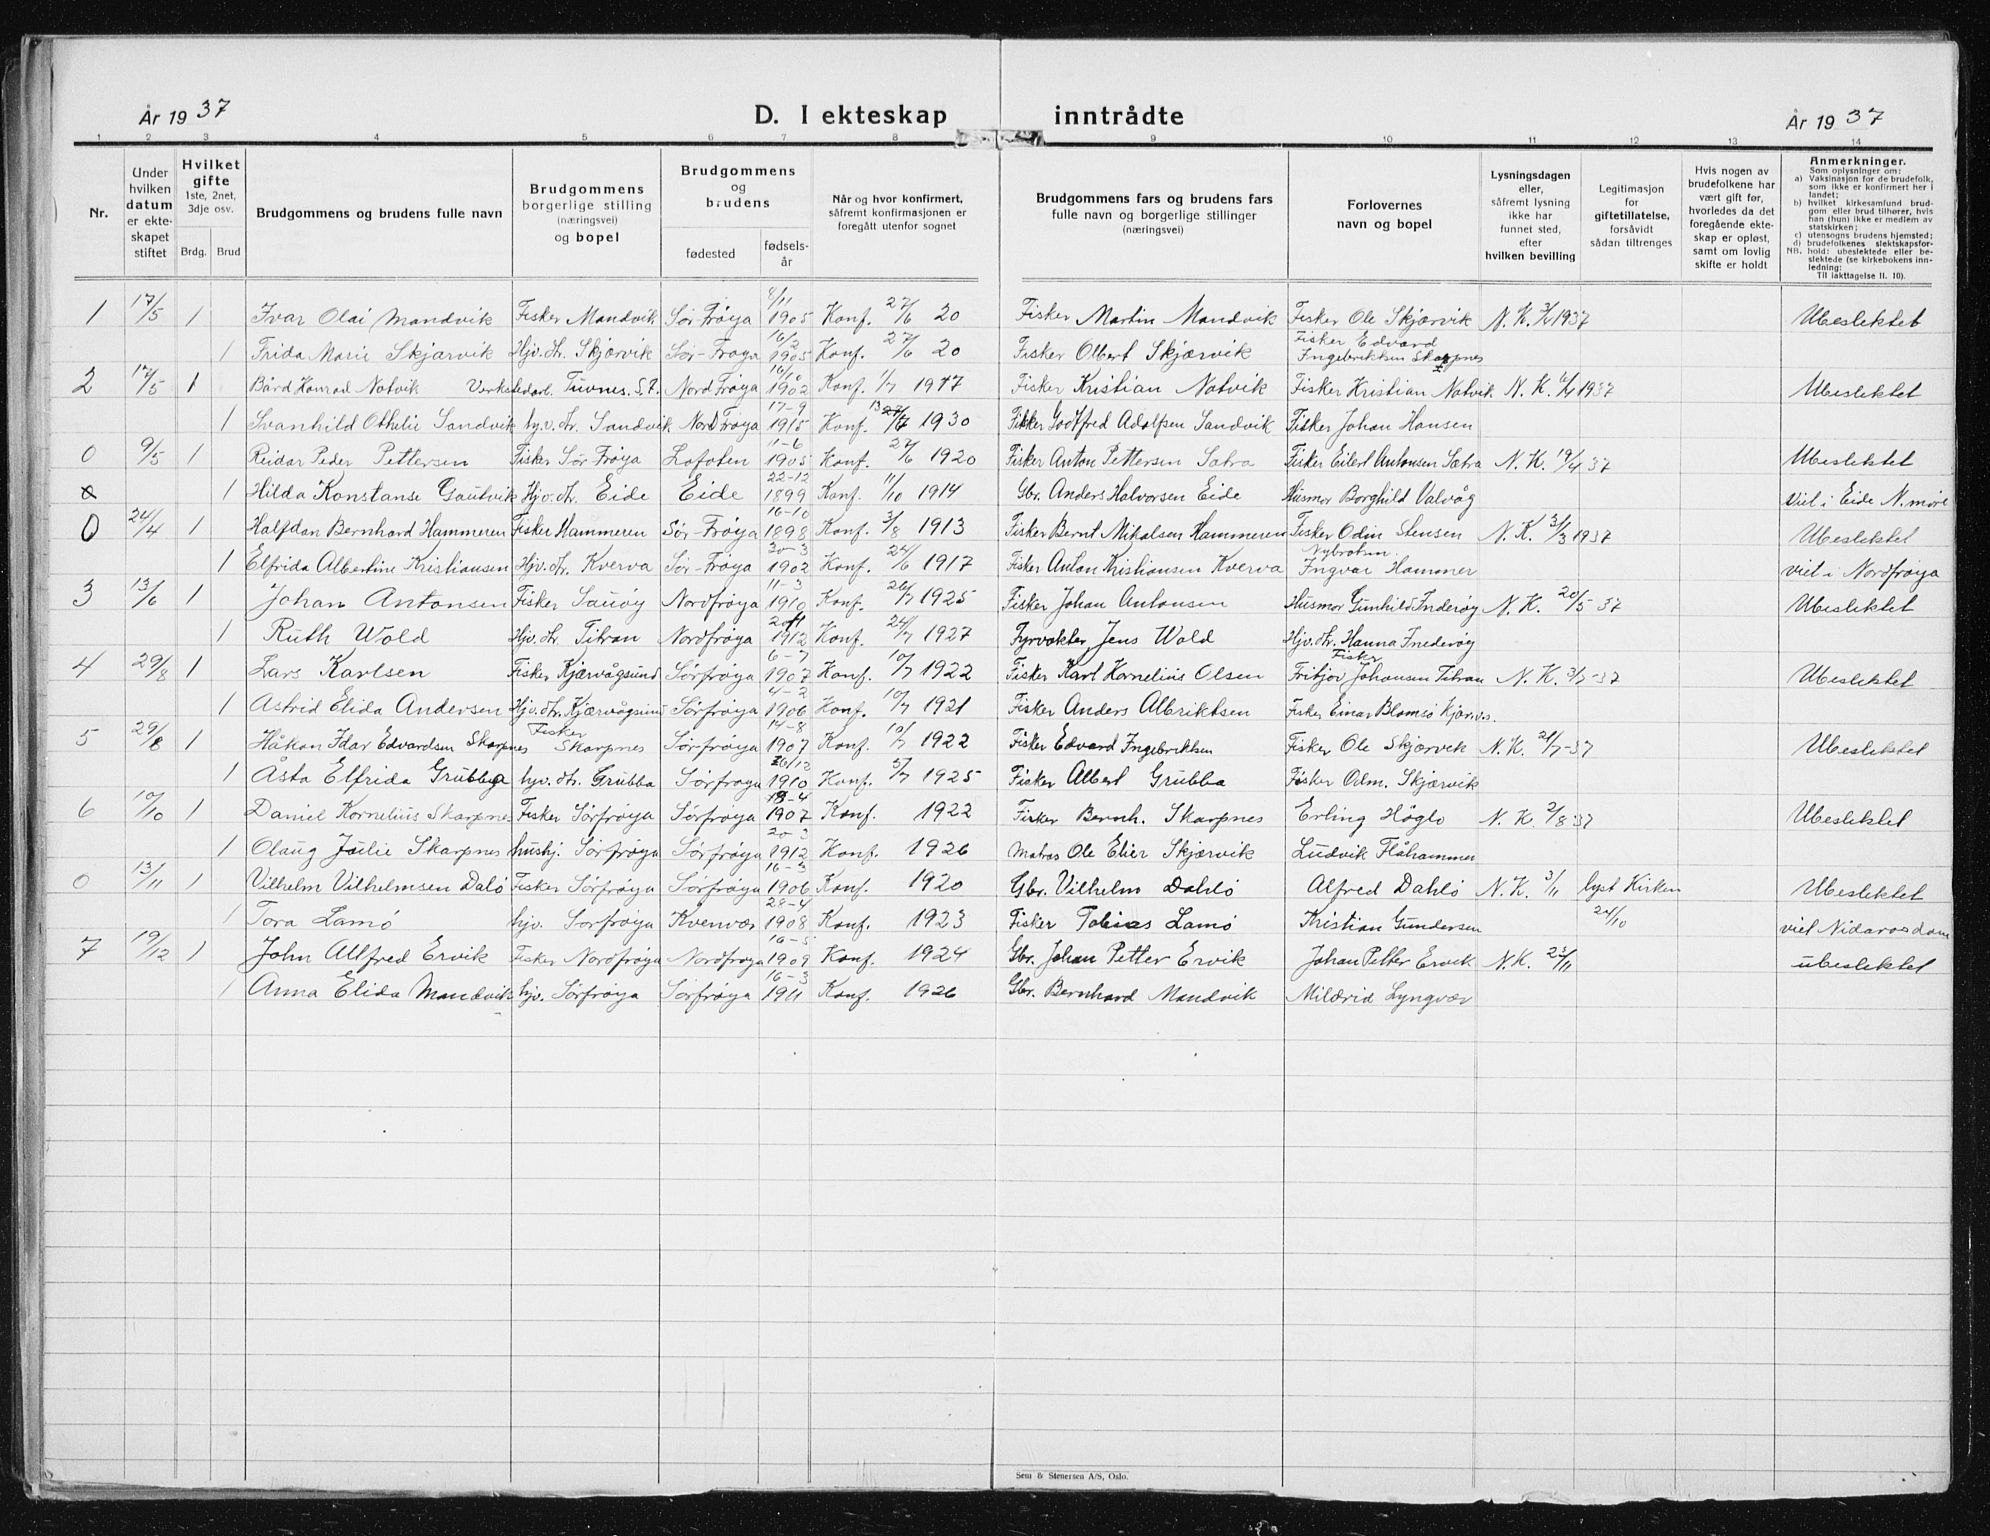 År 1937 D. I ekteskap inntrådte År 1937
1 2 3 4 5 6 7 8 9 10 11 12 13 14
Nr.
Under hvilken datum er ekte- skapet stiftet
Hvilket gifte 1ste, 2net, 3dje osv. Brdg. Brud
Brudgommens og brudens fulle navn
Brudgommens borgerlige stilling (næringsvei) og bopel
Brudgommens og brudens fødested fødsels- år
Når og hvor konfirmert, såfremt konfirmasjonen er foregått utenfor sognet
Brudgommens fars og brudens fars fulle navn og borgerlige stillinger (næringsvei)
Forlovernes navn og bopel
Lysningsdagen eller, såfremt lysning ikke har funnet sted, efter hvilken bevilling
Legitimasjon for giftetillatelse, forsåvidt sådan tiltrenges
Hvis nogen av brudefolkene har vært gift før, hvorledes da det foregående ekte- skap er opløst, samt om lovlig skifte er holdt
Anmerkninger. Som oplysninger om: a) Vaksinasjon for de brudefolk, som ikke er konfirmert her i landet; b) hvilket kirkesamfund brud- gom eller brud tilhører, hvis han (hun) ikke er medlem av statskirken; c) utensogns brudens hjemsted; d) brudefolkenes slektskapsfor- hold: ubeslektede eller be- slektede (se kirkebokens inn- ledning: NB. Til iakttagelse II. 10).
1 17/5 1 Ivar Olai Mandvik Fisker Mandvik Sør Frøya 4/11 1905 Konf. 27/6 20 Fisker Martin Mandvik Fisker Ole Skjærvik N. K. 3/4 1937 Ubeslektet
1 Frida Marie Skjærvik Hjv. dtr. Skjærvik Sør-Frøya 16/2 1905 Konf. 27/6 20 Fisker Olbert Skjærvik Fisker Edvard Ingebriktsen Skarpnes
2 17/5 1 Bård Konrad Notvik Verkstedarb. Tuvnes. S. F. Nord Frøya 16/10 1902 Konf. 1/7 1917 Fisker Kristian Notvik Fisker Kristian Notvik N. K. 4/4 1937 Ubeslektet
1 Svanhild Othilie Sandvik hjv. dtr. Sandvik Nord Frøya 17-9 1915 Konf. 13/7 1930 Fisker Godtfred Adolfsen Sandvik Fisker Johan Hansen
0 9/5 1 Reidar Peder Pettersen Fisker Sør Frøya Lofoten 11-6 1905 Konf. 27/6 1920 Fisker Anton Pettersen Sætra Fisker Eilert Antonsen Sætra N. K. 19/4 37 Ubeslektet
1 Hilda Konstanse Gautvik Hjv. dtr. Eide Eide 22-12 1899 Konf. 11/10 1914 Gbr. Anders Halvorsen Eide Husmor Borghild Valvåg viet i Eide N. møre
0 24/4 1 Halfdan Bernhard Hammeren Fisker Hammeren Sør-Frøya 16-10 1898 Konf. 3/8 1913 Fisker Bernt Mikalsen Hammeren Fisker Odin Stensen N. K. 31/3 1937 Ubeslektet
1 Elfrida Albertine Kristiansen Hjv. dtr. Kverva Sør-Frøya 20-3 1902 Konf. 24/6 1917 Fisker Anton Kristiansen Kverva Ingvar Hammer viet i Nordfrøya
3 13/6 1 Johan Antonsen Fisker Sauøy Nordfrøya 11-3 1910 Konf. 26/7 1925 Fisker Johan Antonsen Husmor Gunhild Inderøy N. K. 20/5-37 Ubeslektet
1 Ruth Wold Hjv. dtr. Titran Nordfrøya 1912 Konf. 24/7 1927 Fyrvokter Jens Wold Hjv. dtr. Hanna Inderøy
4 29/8 1 Lars Karlsen Fisker Kjærvågsund Sørfrøya 6-7 1907 Konf. 10/7 1922 Fisker Karl Kornelius Olsen Fisker Fritjov Johansen Titran N. K. 3/7-37 Ubeslektet
1 Astrid Elida Andersen Hjv. dtr. Kjærvågsund Sørfrøya 4-2 1906 Konf. 10/7 1921 Fisker Anders Albriktsen Fisker Einar Blomsø Kjærvs.
5 29/8 1 Håkon Idar Edvardsen Skarpnes Fisker Skarpnes Sørfrøya 14-8 1907 Konf. 10/7 1922 Fisker Edvard Ingebriktsen Fisker Ole Skjærvik N. K. 21/7-37 Ubeslektet
1 Åsta Elfrida Grubba hjv. dtr. Grubba Sørfrøya 26/12 1910 Konf. 5/7 1925 Fisker Albert Grubba Fisker Odm. Skjærvik
6 10/10 1 Daniel Kornelius Skarpnes Fisker Sørfrøya Sørfrøya 18-4 1907 Konf. 1922 Fisker Bernh. Skarpnes Erling Höglo N. K. 2/8 37 Ubeslektet
1 Olaug Julie Skarpnes hushj. Sørfrøya Sørfrøya 20-3 1912 Konf. 1926 Matros Ole Elier Skjærvik Ludvik Flåhammer
0 13/11 1 Vilhelm Vilhelmsen Dalø Fisker Sørfrøya Sørfrøya 16-3 1906 Konf. 1920 Gbr. Vilhelm Dahlø Alfred Dahlø N. K. 3/11 lyst Kirken Ubeslektet
1 Tora Lamø hjv. Sørfrøya Kvenvær 28-4 1908 Konf. 1923 Fisker Tobias Lamø Kristian Gundersen 24/10 viet Nidarosdom
7 19/12 1 John Allfred Ervik Fisker Nordfrøya Nordfrøya 16-5 1909 Konf. 1924 Gbr. Johan Petter Ervik Johan Petter Ervik N. K. 23/11 ubeslektet
1 Anna Elida Mandvik hjv. Sørfrøya Sørfrøya 16-3 1911 Konf. 1926 Gbr. Bernhard Mandvik Mildrid Lyngvær
Sem & Stenersen A/S, Oslo.